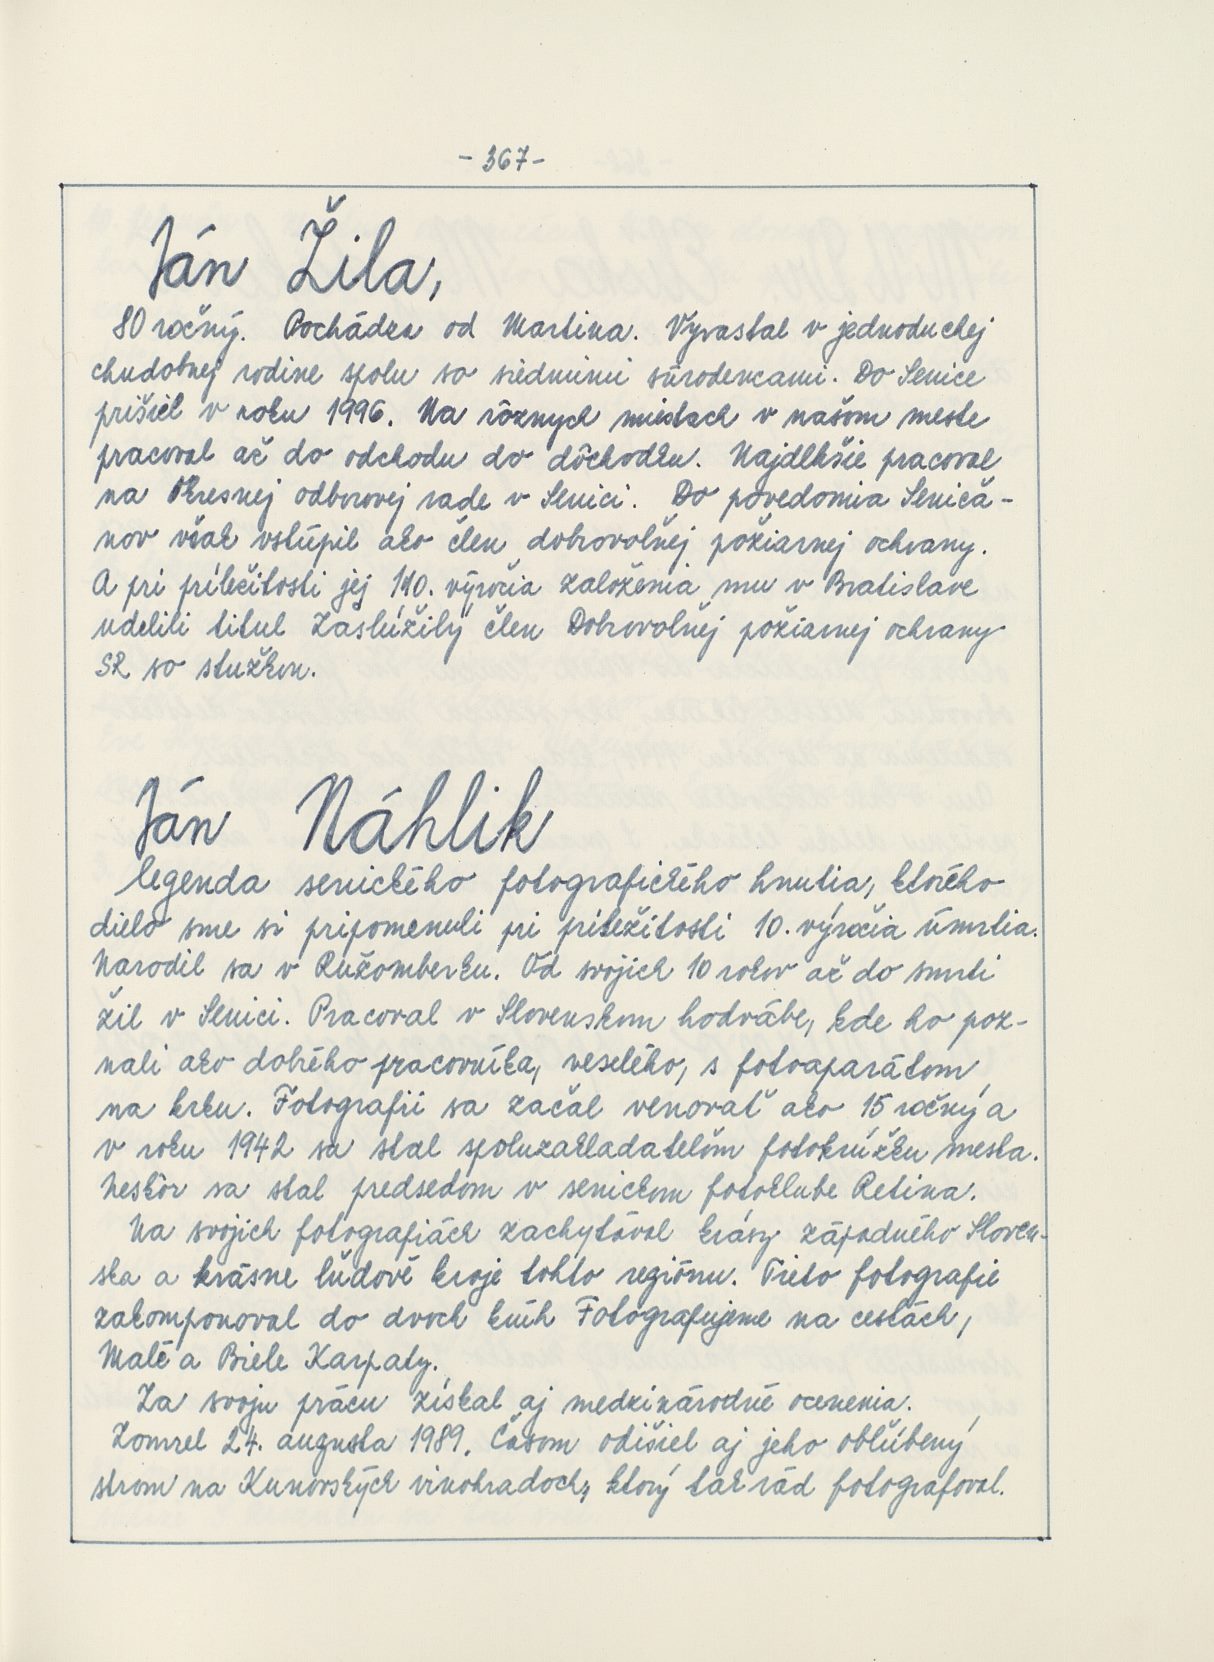 - 367 -
Ján Žila,
80 ročný. Pochádza od Martina. Vyrastal v jednoduchej
chudobnej rodine spolu so siedmimi súrodencami. Do Senice
prišiel v roku 1996. Na rôznych miestach v našom meste
pracoval až do odchodu do dôchodku. Najdlhšie pracoval
na Okresnej odborovej rade v Senici. Do povedomia Seniča-
nov však vstúpil ako člen dobrovoľnej požiarnej ochrany.
A pri príležitosti jej 140. výročia založenia mu v Bratislave
udelili titul Zaslúžilý člen Dobrovoľnej požiarnej ochrany
SR so stužkou.
Ján Náhlik
legenda senického fotografického hnutia, ktorého
dielo sme si pripomenuli pri príležitosti 10. výročia úmrtia.
Narodil sa v Ružomberku. Od svojich 10 rokov až do smrti
žil v Senici. Pracoval v Slovenskom hodvábe, kde ho poz-
nali ako dobrého pracovníka, veselého, s fotoaparátom
na krku. Fotografii sa začal venovať ako 15 ročný a
v roku 1942 sa stal spoluzakladateľom fotokrúžku mesta.
Neskôr sa stal predsedom v senickom fotoklube Retina.
Na svojich fotografiách zachytával krásy západného Sloven-
ska a krásne ľudové kroje tohto regiónu. Tieto fotografie
zakomponoval do dvoch kníh Fotografujeme na cestách,
Malé a Biele Karpaty.
Za svoju prácu získal aj medzinárodné ocenenia.
Zomrel 24. augusta 1989. Časom odišiel aj jeho obľúbený
strom na Kunovských vinohradoch, ktorý tak rád fotografoval.